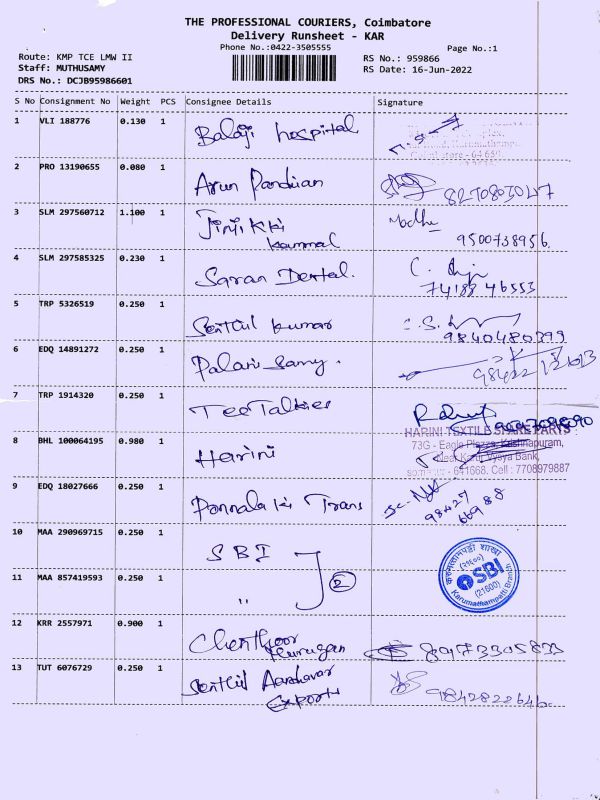 THE PROFESSIONAL COURIERS, Coimbatore
Delivery Runsheet - KAR
Phone No.:0422-3505555
Page No.:1
Route: KMP TCE LMW II
Staff: MUTHUSAMY
DRS No.: DCJB95986601
RS No.: 959866
RS Date: 16-Jun-2022
S No Consignment No Weight PCS Consignee Details Signature
1 VLI 188776 0.130 1 Balaji hospital
2 PRO 13190655 0.080 1 Arun Pandiian
3 SLM 297560712 1.100 1 Jimikki
Kammal
Madhu
9500738956
4 SLM 297585325 0.230 1 Saran Dental.
74188 46553
5 TRP 5326519 0.250 1 Senthil Kumar
9840480399
6 EDQ 14891272 0.250 1 Palani Samy.
7 TRP 1914320 0.250 1 Tee Talkies
8 BHL 100064195 0.980 1 Harini
HARINI TEXTILE SPARE PARTS
73G - Eagle Plazza, Krishnapuram,
Near Karur Vysya Bank,
641668. Cell : 7708979887
9 EDQ 18027666 0.250 1 Ponnalaki Trans
98427
66988
10 MAA 290969715 0.250 1 SBI
11 MAA 857419593 0.250 1 "
2
करुमत्तमपट्टी शाखा
(२१६००)
SBI
(21600)
Karumathampatti Branch
12 KRR 2557971 0.900 1 Chenthoor
Murugan
8973305833
13 TUT 6076729 0.250 1 Senthil Aandavar
Exports
9842822646